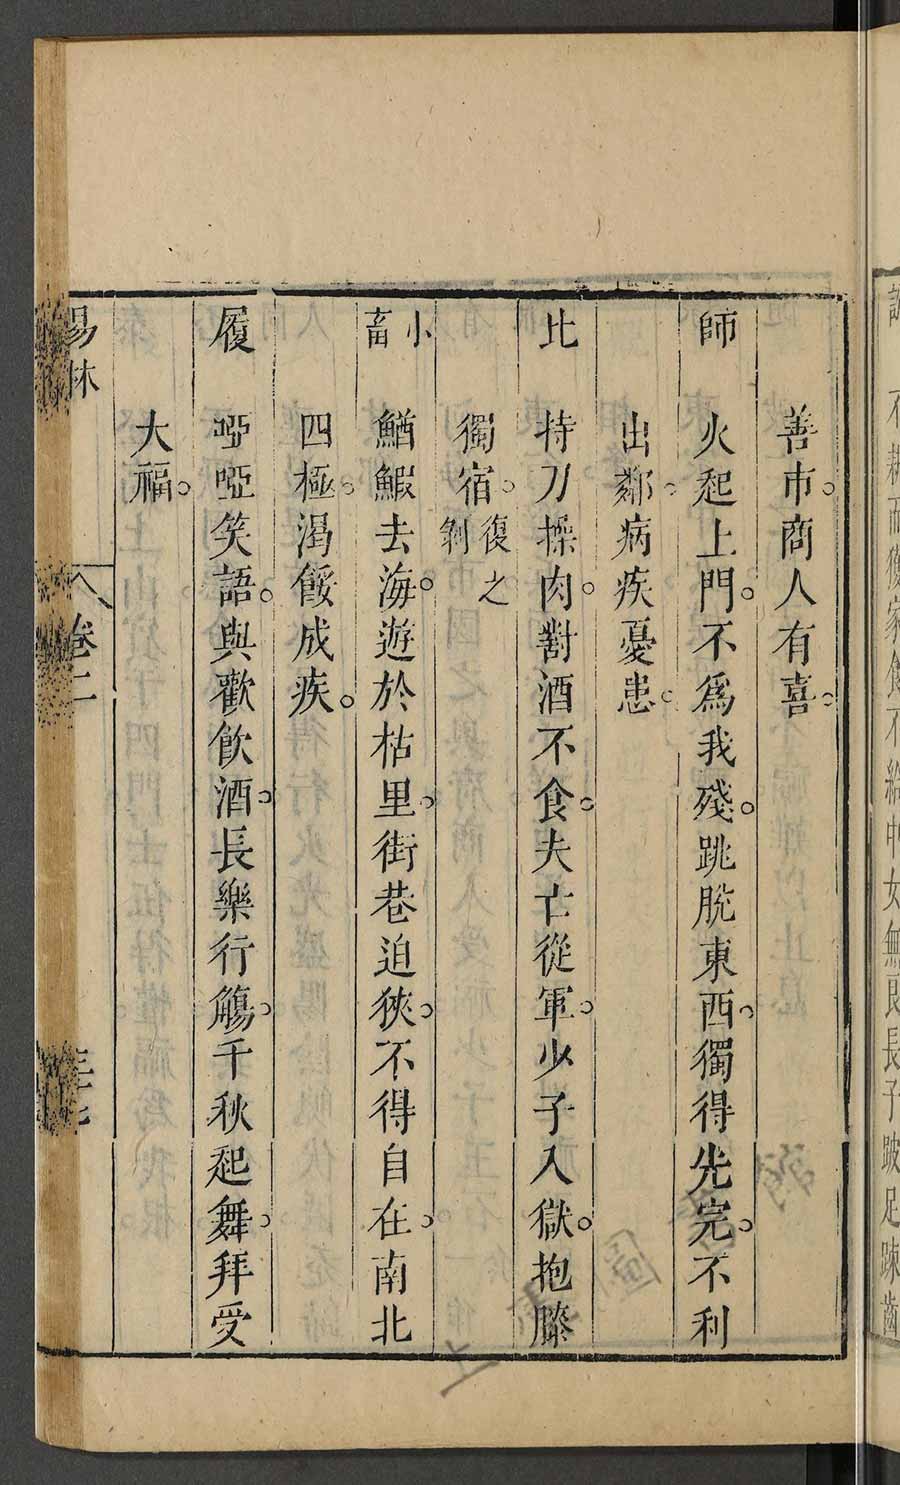 善市。商人有喜。
師　火起上門。不爲我殘。跳脫東西。獨得先完。不利
出鄰。病疾憂患。
比　持刀操肉。對酒不食。夫亡從軍。少子入獄。抱膝
獨宿。復之剝
小畜　鰌鰕去海。遊於枯里。街巷迫狹。不得自在。南北
四極。渴餒成疾。
履　啞啞笑語。與歡飲酒。長樂行觴。千秋起舞。拜受
大福。
易林　卷二
不耕而獲家食不給中女無良長子跛足踈齒